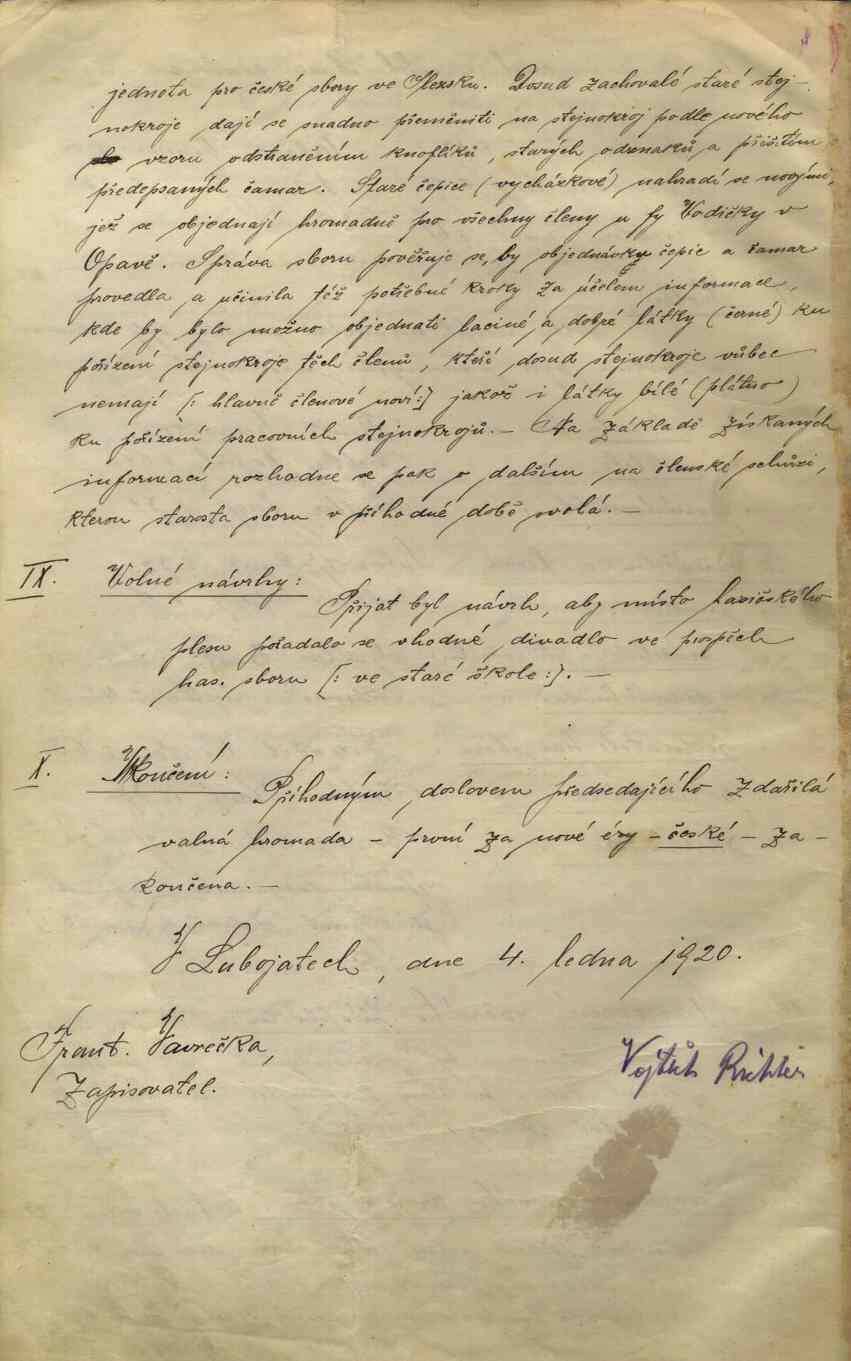 jednota pro české sbory ve Slezsku. Dosud zachovalé staré stej-
nokroje dají se snadno přeměniti na stejnokroj podle nového
vzoru odstraněním knoflíků, starých odznaků a přišitím
předepsaných čamar. Staré čepice (vycházkové) nahradí se novými,
jež se objednají hromadně pro všechny členy u fy Vodičky v
Opavě. Správa sboru pověřuje se, by objednávky čepic a čamar
provedla a učinila též potřebné kroky za účelem informace,
kde by bylo možno objednati laciné a dobré látky (černé) ku
pořízení stejnokroje těch členů, kteří dosud stejnokroje vůbec
nemají [: hlavně členové noví :] jakož i látky bílé (plátno)
ku pořízení pracovních stejnokrojů. – Na základě získaných
informací rozhodne se pak o dalším na členské schůzi,
kterou starosta sboru v příhodné době svolá. –
IX. Volné návrhy:
Přijat byl návrh, aby místo hasičského
plesu pořádalo se vhodné divadlo ve prospěch
has. sboru [: ve staré škole :]. –
X. Skončení:
Příhodným doslovem předsedajícího zdařilá
valná hromada – první za nové éry – české – za-
končena. –
V Lubojatech, dne 4. ledna 1920.
Frant. Vavrečka,
zapisovatel.
Vojtěch Richter